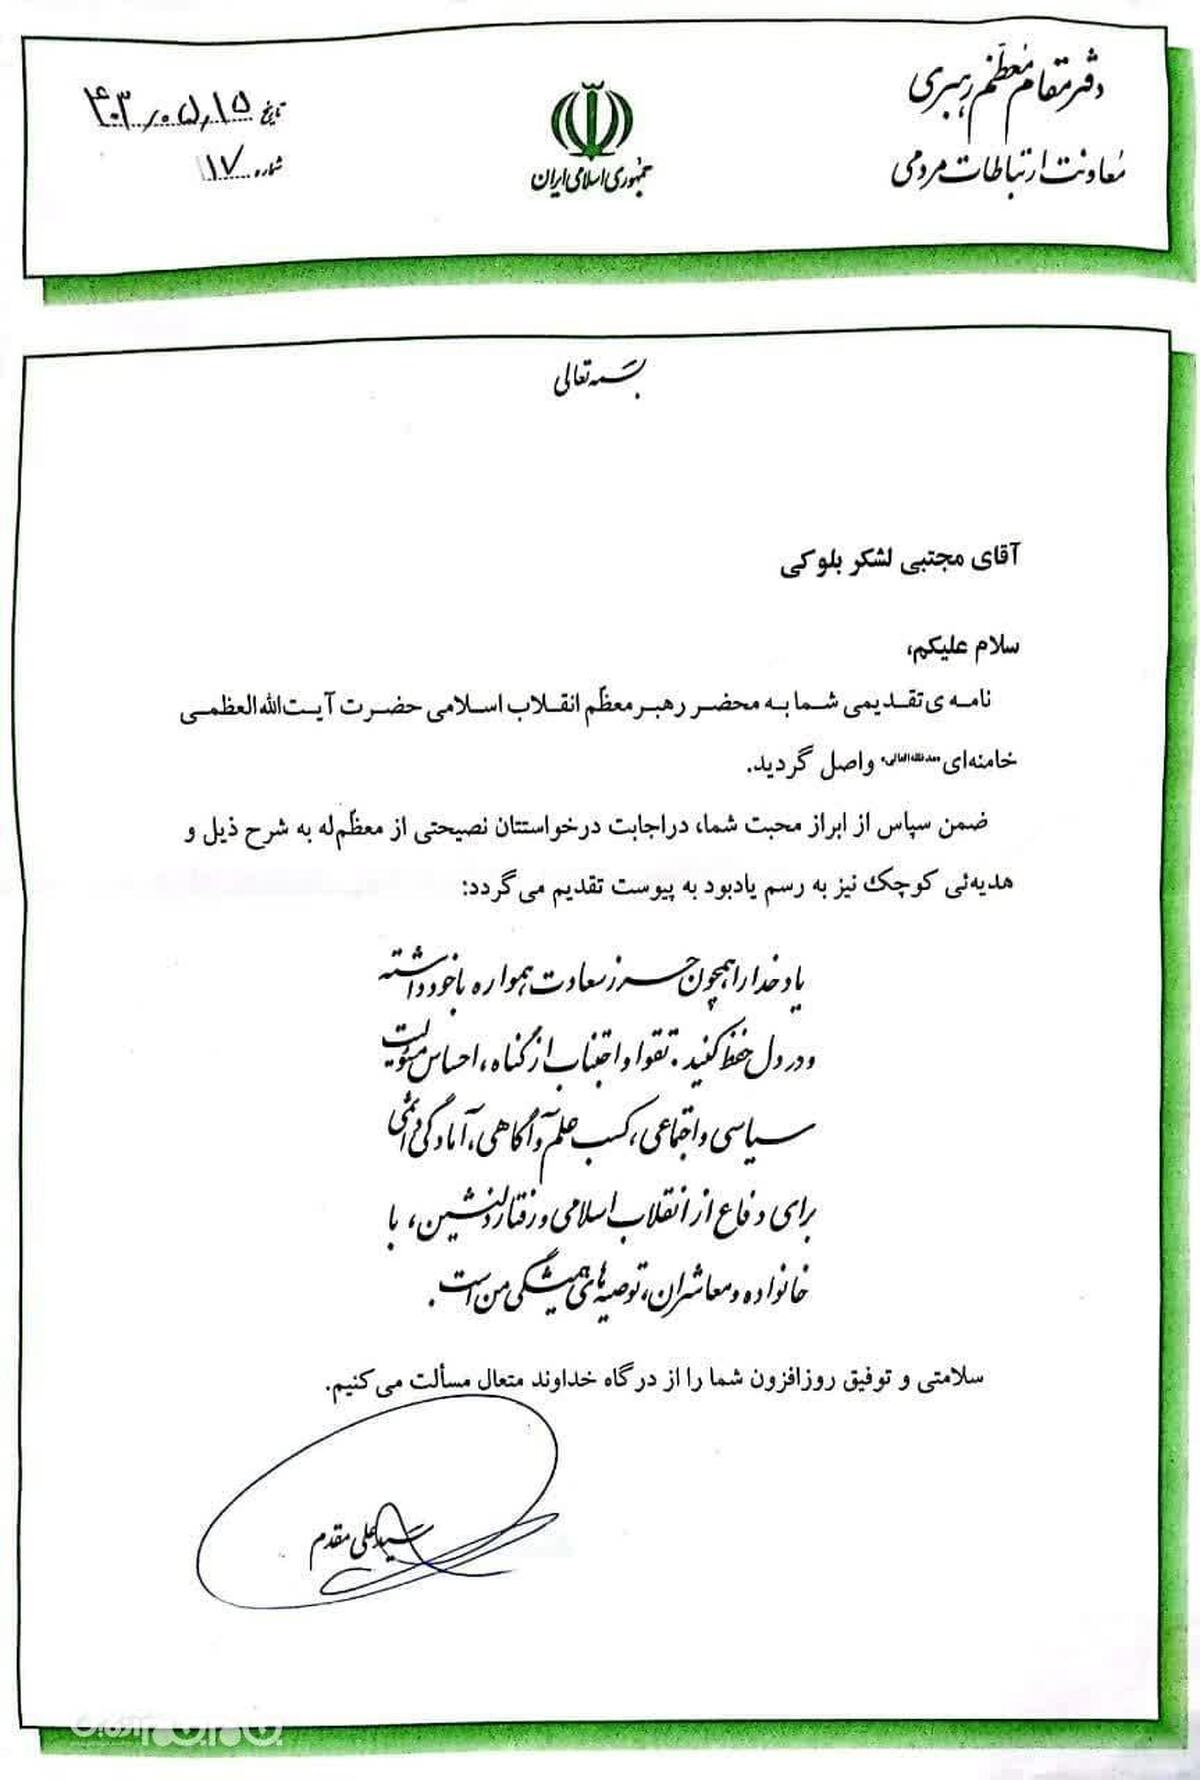 دفتر مقام معظم رهبری
معاونت ارتباطات مردمی
جمهوری اسلامی ایران
تاریخ ۴۰۳/۰۵/۱۵
شماره ۱۷
بسمه تعالی
آقای مجتبی لشکر بلوکی
سلام علیکم،
نامه ی تقدیمی شما به محضر رهبر معظّم انقلاب اسلامی حضرت آیت‌الله‌العظمی
خامنه‌ای «مدظله‌العالی» واصل گردید.
ضمن سپاس از ابراز محبت شما، در اجابت درخواستتان نصیحتی از معظّم‌له به شرح ذیل و
هدیه‌ئی کوچک نیز به رسم یادبود به پیوست تقدیم می گردد:
یاد خدا را همچون حرز سعادت همواره با خود داشته
و در دل حفظ کنید. تقوا و اجتناب از گناه، احساس مسئولیت
سیاسی و اجتماعی، کسب علم و آگاهی، آمادگی دائمی
برای دفاع از انقلاب اسلامی و رفتار دلنشین، با
خانواده و معاشران، توصیه های همیشگی من است.
سلامتی و توفیق روزافزون شما را از درگاه خداوند متعال مسألت می کنیم.
سید علی مقدم